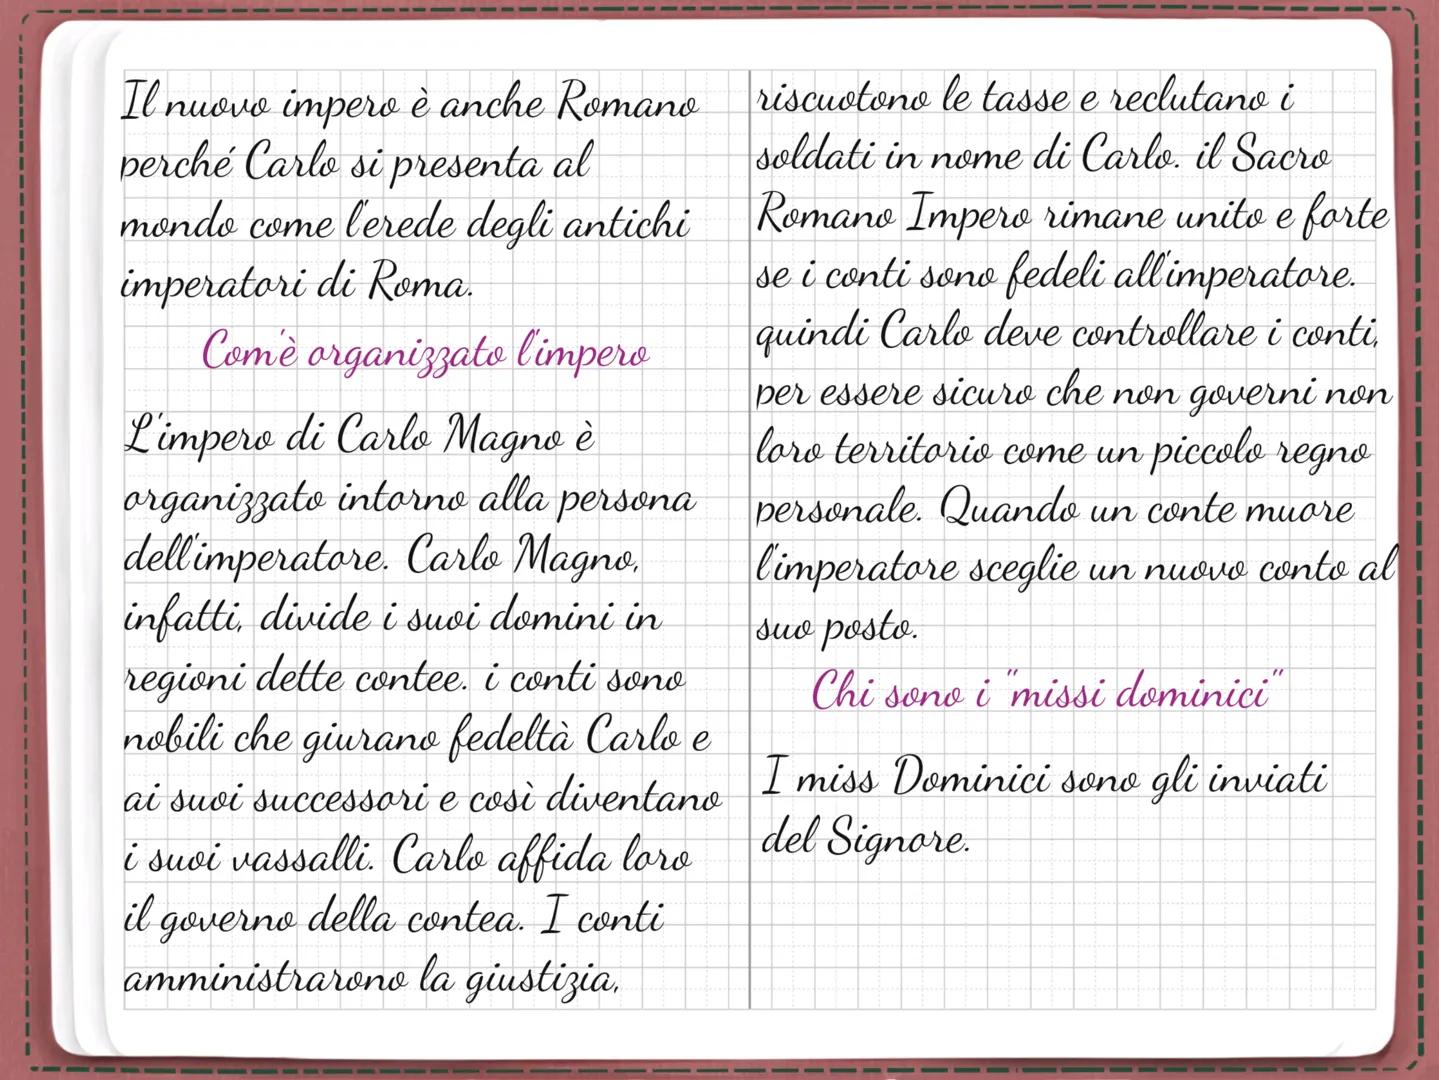 Il nuovo impero è anche Romano
perché Carlo si presenta al
mondo come l'erede degli antichi
imperatori di Roma.
Com'è organizzato l'impero
L'impero di Carlo Magno è
organizzato intorno alla persona
dell'imperatore. Carlo Magno,
infatti, divide i suoi domini in
regioni dette contee. i conti sono
nobili che giurano fedeltà Carlo e
ai suoi successori e così diventano
i suoi vassalli. Carlo affida loro
il governo della contea. I conti
amministrarono la giustizia,
riscuotono le tasse e reclutano i
soldati in nome di Carlo. il Sacro
Romano Impero rimane unito e forte
se i conti sono fedeli all'imperatore.
quindi Carlo deve controllare i conti,
per essere sicuro che non governi non
loro territorio come un piccolo regno
personale. Quando un conte muore
l'imperatore sceglie un nuovo conto al
suo posto.
Chi sono i "missi dominici"
I miss Dominici sono gli inviati
del Signore.